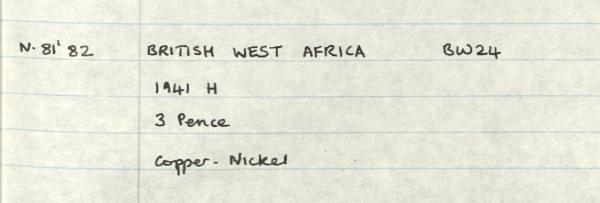 N. 81' 82 BRITISH WEST AFRICA BW24
1941 H
3 Pence
Copper-Nickel